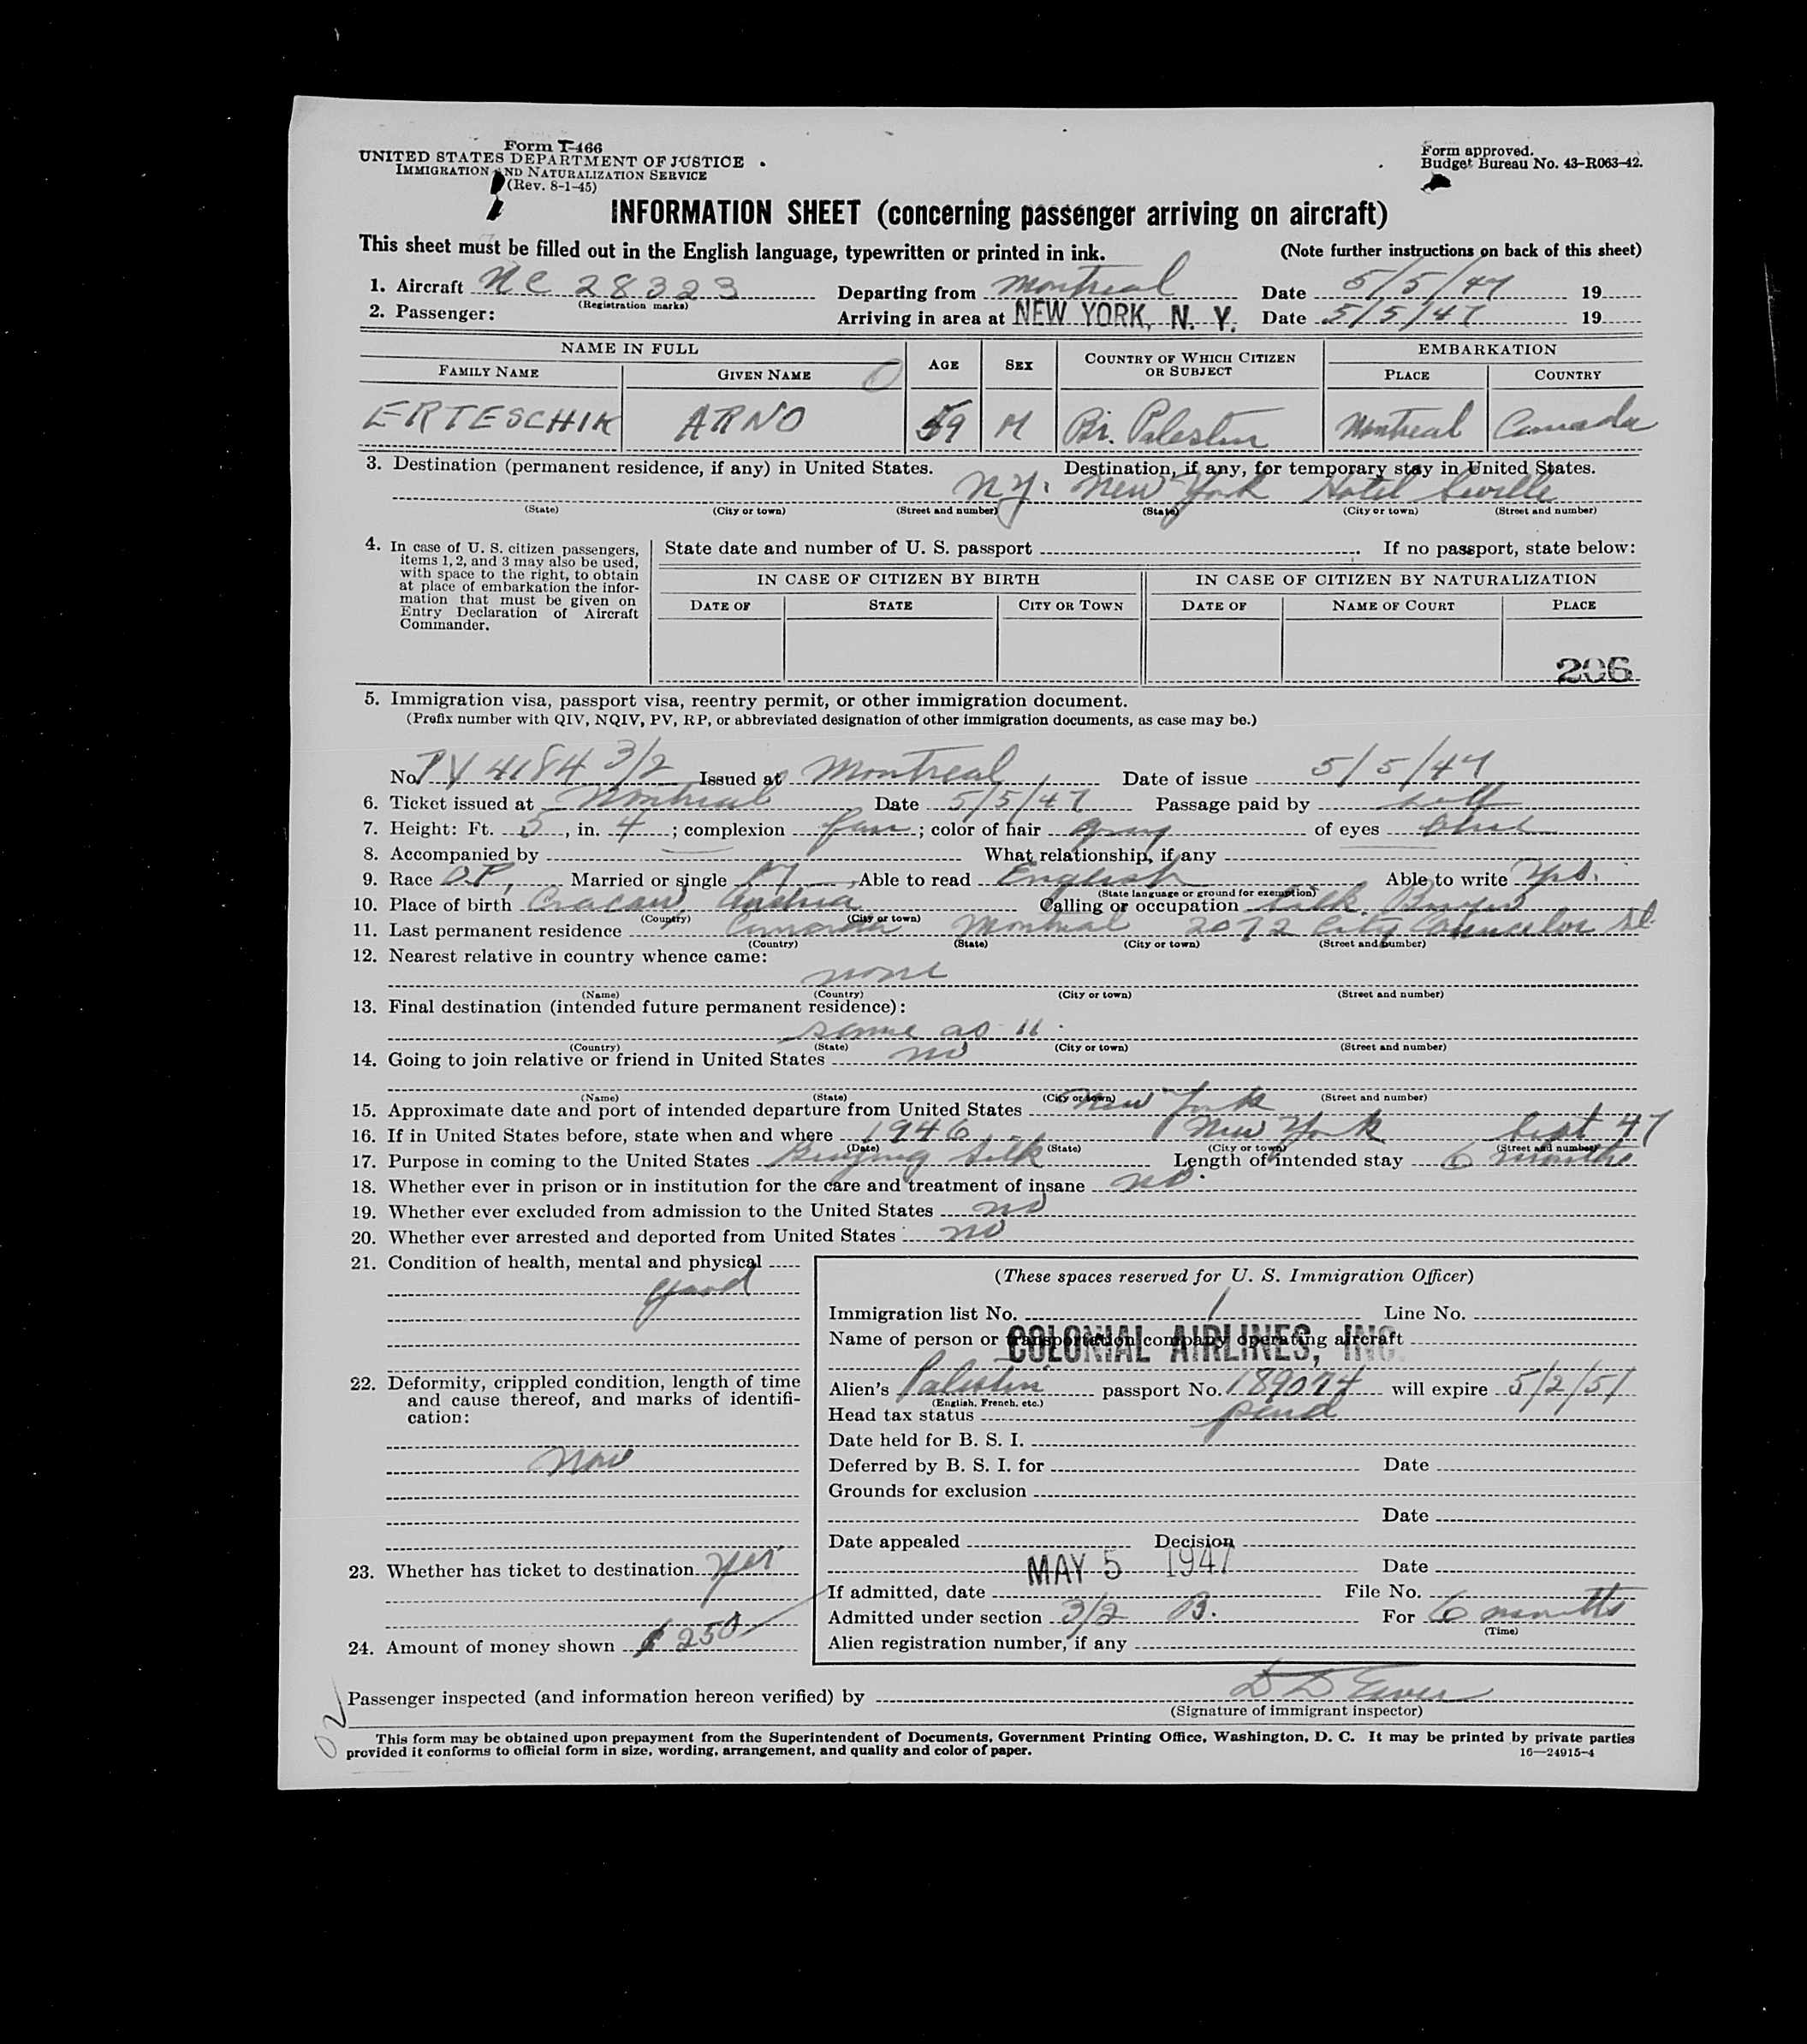 Form I-466
UNITED STATES DEPARTMENT OF JUSTICE
IMMIGRATION AND NATURALIZATION SERVICE
(Rev. 8-1-45)
Form approved.
Budget Bureau No. 43-R063-42.
INFORMATION SHEET (concerning passenger arriving on aircraft)
This sheet must be filled out in the English language, typewritten or printed in ink. (Note further instructions on back of this sheet)
1. Aircraft NC 28323 Departing from Montreal Date 5/5/47 19
(Registration marks)
2. Passenger: Arriving in area at NEW YORK, N. Y. Date 5/5/47 19
NAME IN FULL AGE SEX COUNTRY OF WHICH CITIZEN OR SUBJECT EMBARKATION
FAMILY NAME GIVEN NAME PLACE COUNTRY
ERTESCHIK ARNO 59 M Br. Palestin Montreal Canada
3. Destination (permanent residence, if any) in United States. Destination, if any, for temporary stay in United States.
N.Y. New York Hotel Seville
(State) (City or town) (Street and number) (State) (City or town) (Street and number)
4. In case of U. S. citizen passengers, items 1, 2, and 3 may also be used, with space to the right, to obtain at place of embarkation the information that must be given on Entry Declaration of Aircraft Commander.
State date and number of U. S. passport If no passport, state below:
IN CASE OF CITIZEN BY BIRTH IN CASE OF CITIZEN BY NATURALIZATION
DATE OF STATE CITY OR TOWN DATE OF NAME OF COURT PLACE
206
5. Immigration visa, passport visa, reentry permit, or other immigration document.
(Prefix number with QIV, NQIV, PV, RP, or abbreviated designation of other immigration documents, as case may be.)
No. PV 4184 3/2 Issued at Montreal Date of issue 5/5/47
6. Ticket issued at Montreal Date 5/5/47 Passage paid by self
7. Height: Ft. 5, in. 4; complexion fair; color of hair gray of eyes blue
8. Accompanied by What relationship, if any
9. Race Married or single M Able to read English Able to write Yes.
(State language or ground for exemption)
10. Place of birth Cracau, Austria Calling or occupation Silk Buyer
(Country) (City or town)
11. Last permanent residence Canada Montreal 2072 City Councelor St
(Country) (State) (City or town) (Street and number)
12. Nearest relative in country whence came:
none
(Name) (Country) (City or town) (Street and number)
13. Final destination (intended future permanent residence):
same as 11.
(Country) (State) (City or town) (Street and number)
14. Going to join relative or friend in United States no
(Name) (State) (City or town) (Street and number)
15. Approximate date and port of intended departure from United States New York
16. If in United States before, state when and where 1946 New York Sept 47
(Date) (State) (City or town) (Street and number)
17. Purpose in coming to the United States Buying Silk Length of intended stay 6 months
18. Whether ever in prison or in institution for the care and treatment of insane no.
19. Whether ever excluded from admission to the United States no
20. Whether ever arrested and deported from United States no
21. Condition of health, mental and physical
good
22. Deformity, crippled condition, length of time and cause thereof, and marks of identification:
None
23. Whether has ticket to destination yes
24. Amount of money shown $ 250
(These spaces reserved for U. S. Immigration Officer)
Immigration list No. 1 Line No.
Name of person or transportation company operating aircraft
COLONIAL AIRLINES, INC.
Alien's Palestin passport No. 189074 will expire 5/2/51
(English, French, etc.)
Head tax status paid
Date held for B. S. I.
Deferred by B. S. I. for Date
Grounds for exclusion
Date
Date appealed Decision
MAY 5 1947 Date
If admitted, date File No.
Admitted under section 3/2 B. For 6 months
(Time)
Alien registration number, if any
Passenger inspected (and information hereon verified) by
(Signature of immigrant inspector)
This form may be obtained upon prepayment from the Superintendent of Documents, Government Printing Office, Washington, D. C. It may be printed by private parties
provided it conforms to official form in size, wording, arrangement, and quality and color of paper. 16—24915-4